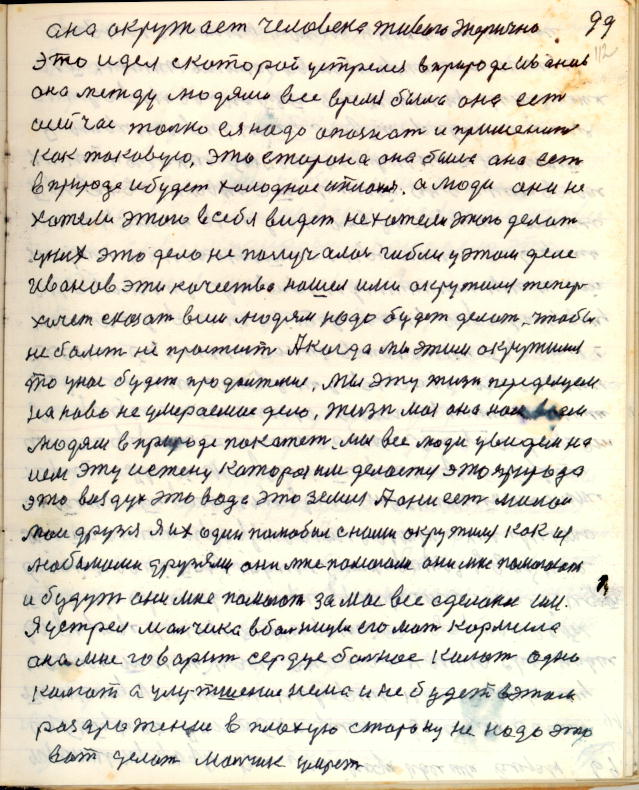 99
112
она окружает человека живого энергично
это идея с которой устрелся в природе Иванов
она между людями все время была она ест
сейчас толко ея надо опознат и применит
как таковую, это сторона она была она ест
в природе и будет холодное и плохое. а люди они не
хотели этого в себя видет не хотели этого делат
у них это дело не получалос гибли у этом деле
Иванов эти качества нашел ими окружился тепер
хочет сказат всим людям надо будет делат, чтобы
не болет не простыт А когда мы этим окружимся
то у нас будет продолжение, мы эту жизн переделуем
на ново не умераемое дело, жизн моя она нам всем
людям в природе покажет. мы все люди увидем на
нем эту истену которая им деласты это природа
это воздух это вода это земля А они ест милаи
мои друзя я их один полюбил с ними окружился как из
любимыми друзями они мне помогали они мне помогают
и будут они мне помогат за мое все сделаное им.
Я устрел малчика в болницы его мат кормила
она мне говарыт сердце болное колят одно
колят а улутшение нема и не будет в этом
раздражение в плохую сторону не надо это
вот делат малчик умрет